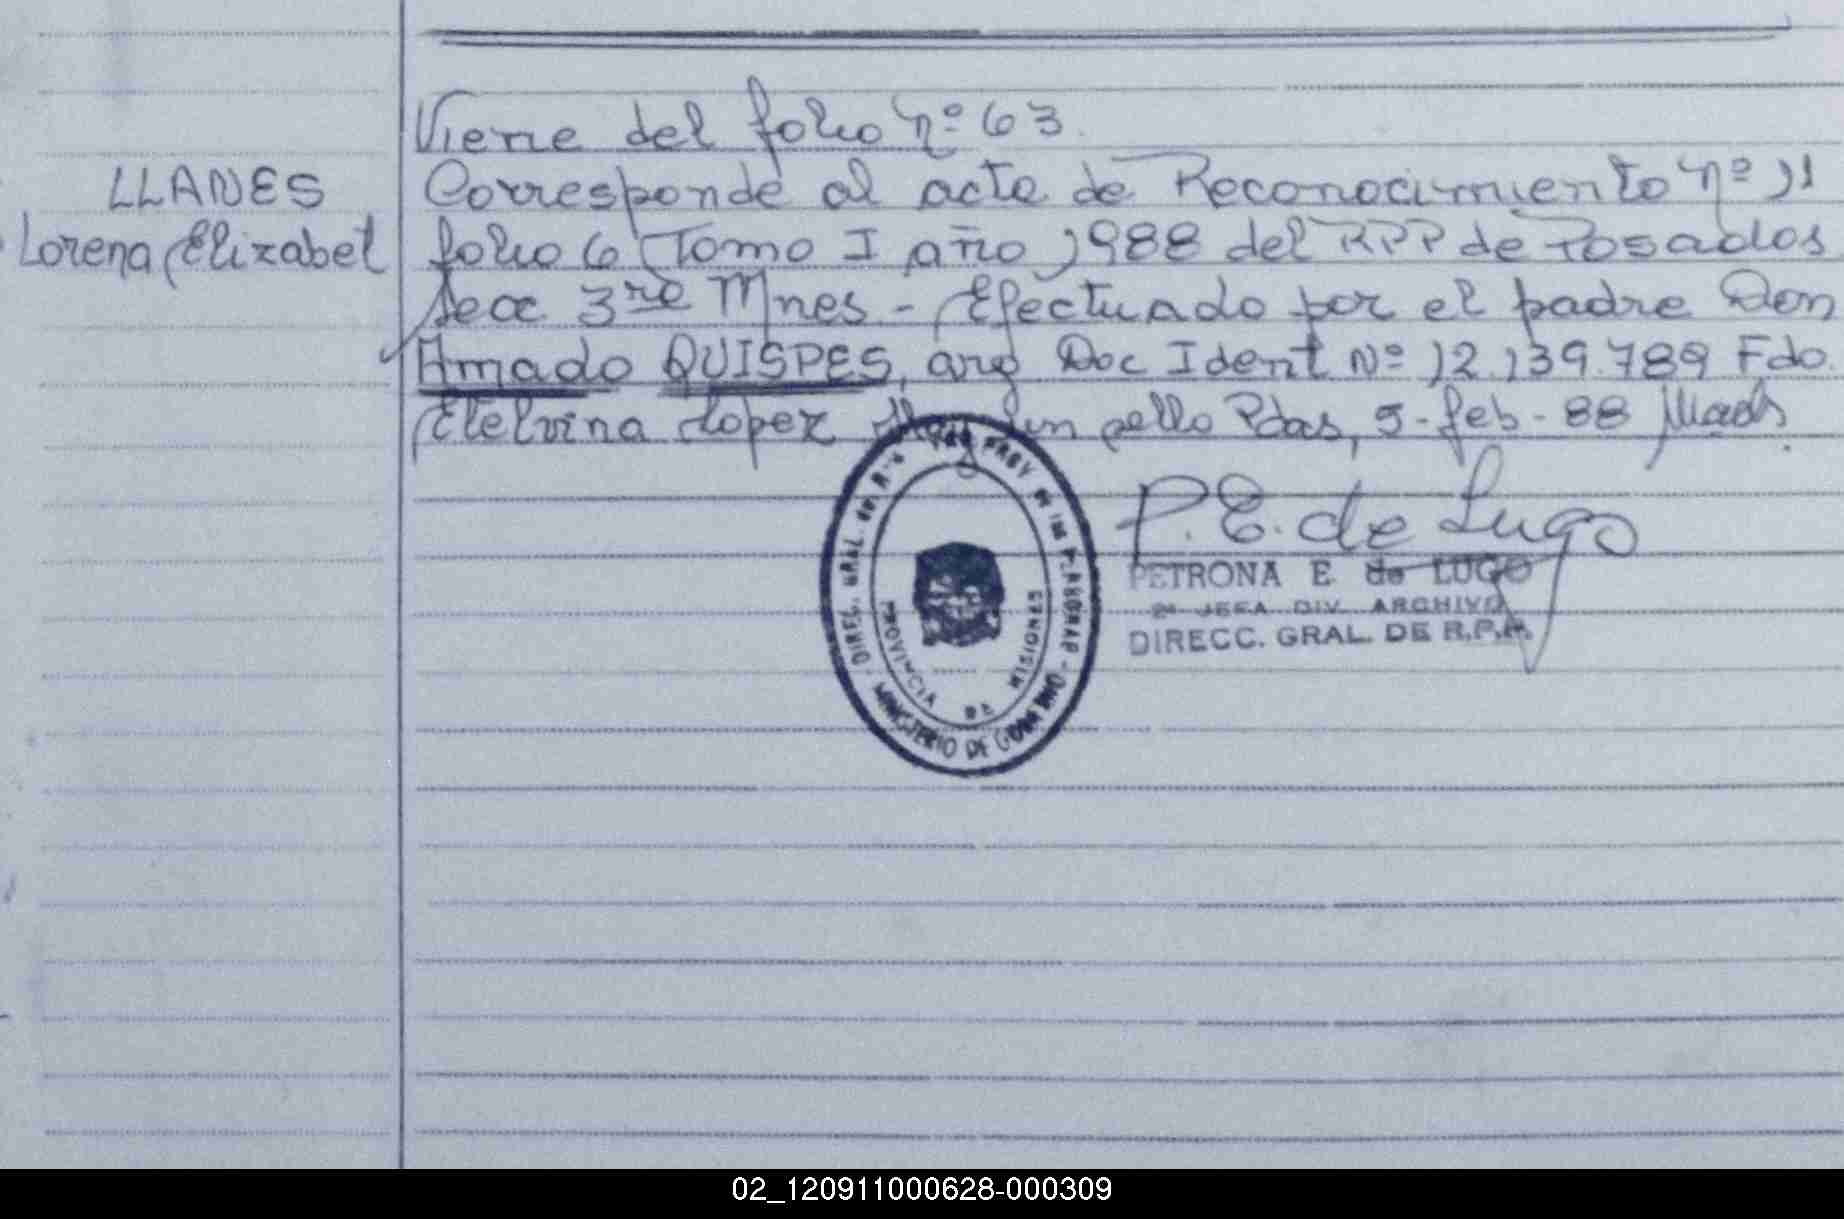 Viene del folio Nº 63.
LLANES
Lorena Elizabet
Corresponde al acta de Reconocimiento Nº 11
folio 6 Tomo I año 1988 del RPP de Posadas
Secc 3ra Mnes - Efectuado por el padre Don
Amado QUISPES, arg Doc Ident Nº 12.139.789 Fdo.
Etelvina Lopez un sello Pdas, 5-feb-88
P. E. de Lugo
PETRONA E. de LUGO
2ª JEFA DIV. ARCHIVO
DIRECC. GRAL. DE R.P.P.
DIREC. GRAL. del PROV. de las PERSONAS
MINISTERIO DE GOBIERNO
PROVINCIA DE MISIONES
02_120911000628-000309